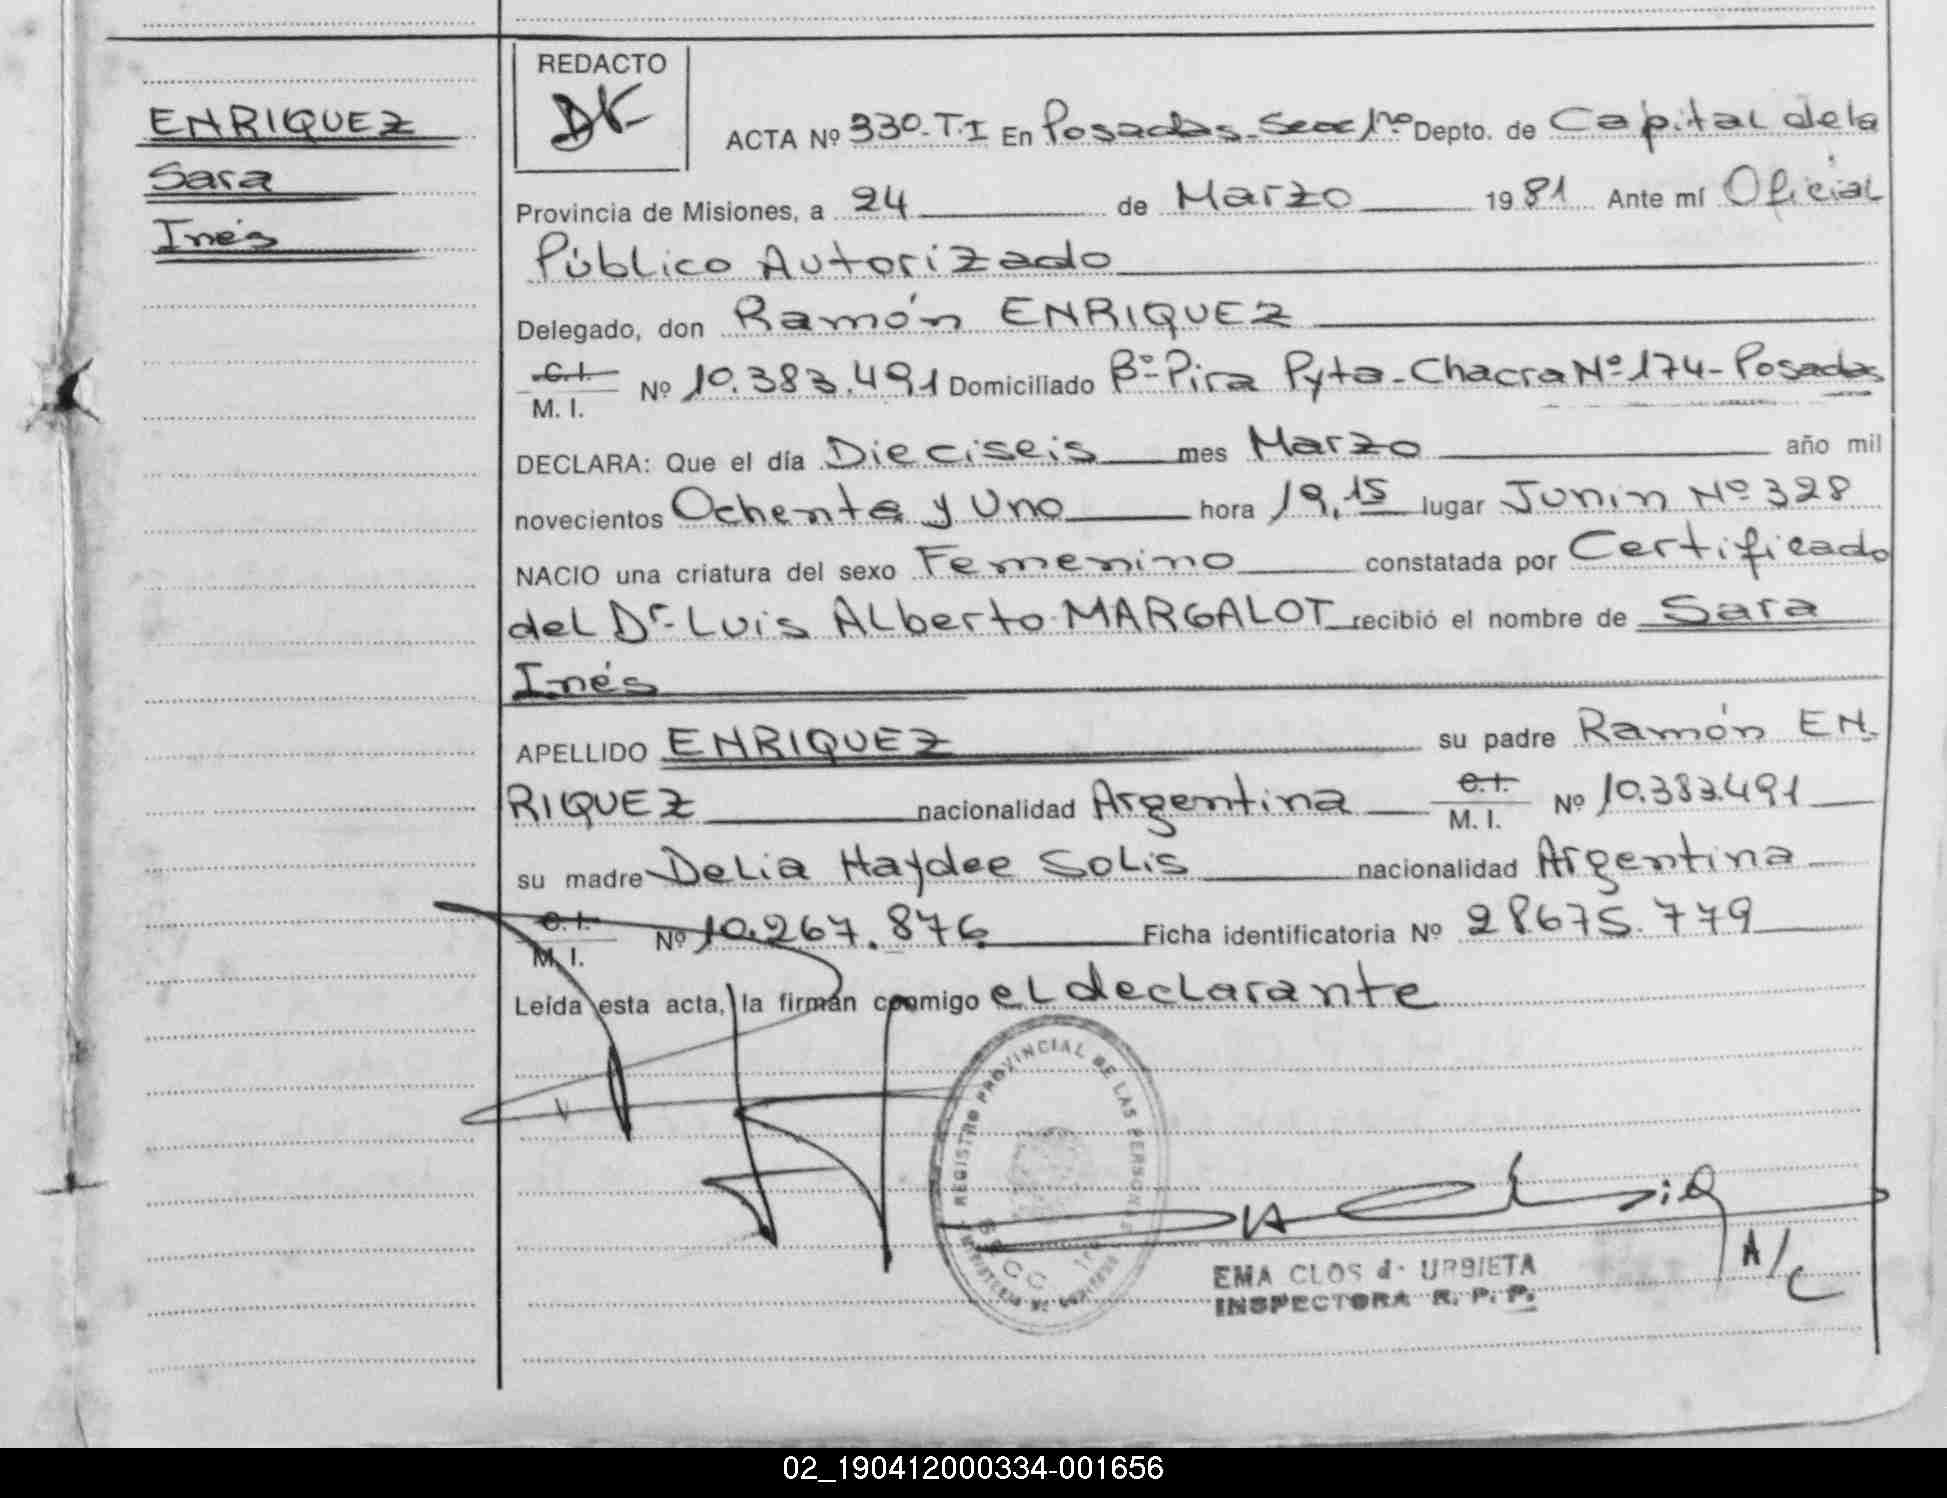 ENRIQUEZ
Sara
Inés
REDACTO
ACTA Nº 330-T.I En Posadas-Secc 1ra Depto. de Capital de la
Provincia de Misiones, a 24 de Marzo 1981 Ante mí Oficial
Público Autorizado
Delegado, don Ramón ENRIQUEZ
C.I.
M. I. Nº 10.383.491 Domiciliado Bº-Pira Pyta-Chacra Nº 174-Posadas
DECLARA: Que el día Dieciseis mes Marzo año mil
novecientos Ochenta y Uno hora 19,15 lugar Junin Nº 328
NACIO una criatura del sexo Femenino constatada por Certificado
del Dr- Luis Alberto MARGALOT recibió el nombre de Sara
Inés
APELLIDO ENRIQUEZ su padre Ramón EN-
RIQUEZ nacionalidad Argentina C.I. M. I. Nº 10.383.491
su madre Delia Haydee Solis nacionalidad Argentina
C.I.
M. I. Nº 10.267.876 Ficha identificatoria Nº 28675.779
Leída esta acta, la firman conmigo el declarante
REGISTRO PROVINCIAL DE LAS PERSONAS
SECC 1ra
MINISTERIO DE GOBIERNO
A/C
EMA CLOS d. URBIETA
INSPECTORA R. P. P.
02_190412000334-001656